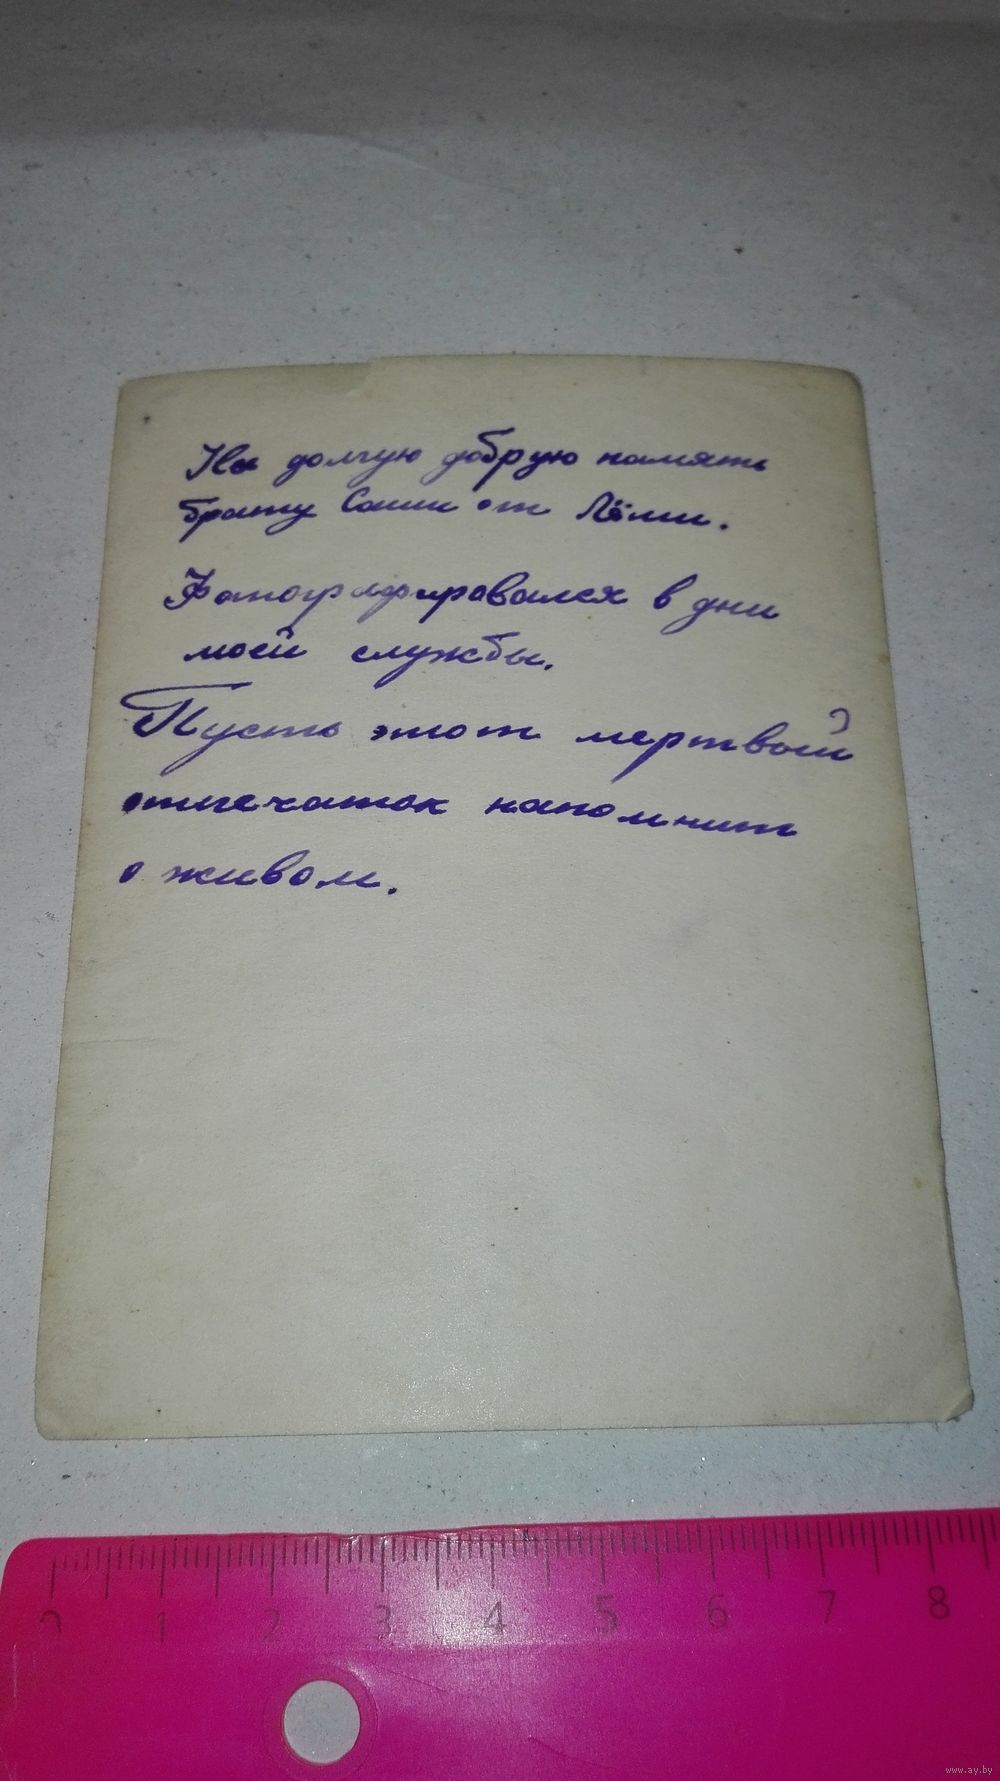 На долгую добрую память
брату Саши от Лёши.
Фатографировался в дни
моей службы.
Пусть этот мертвый
отпечаток напомнит
о живом.
0 1 2 3 4 5 6 7 8
www.ay.by